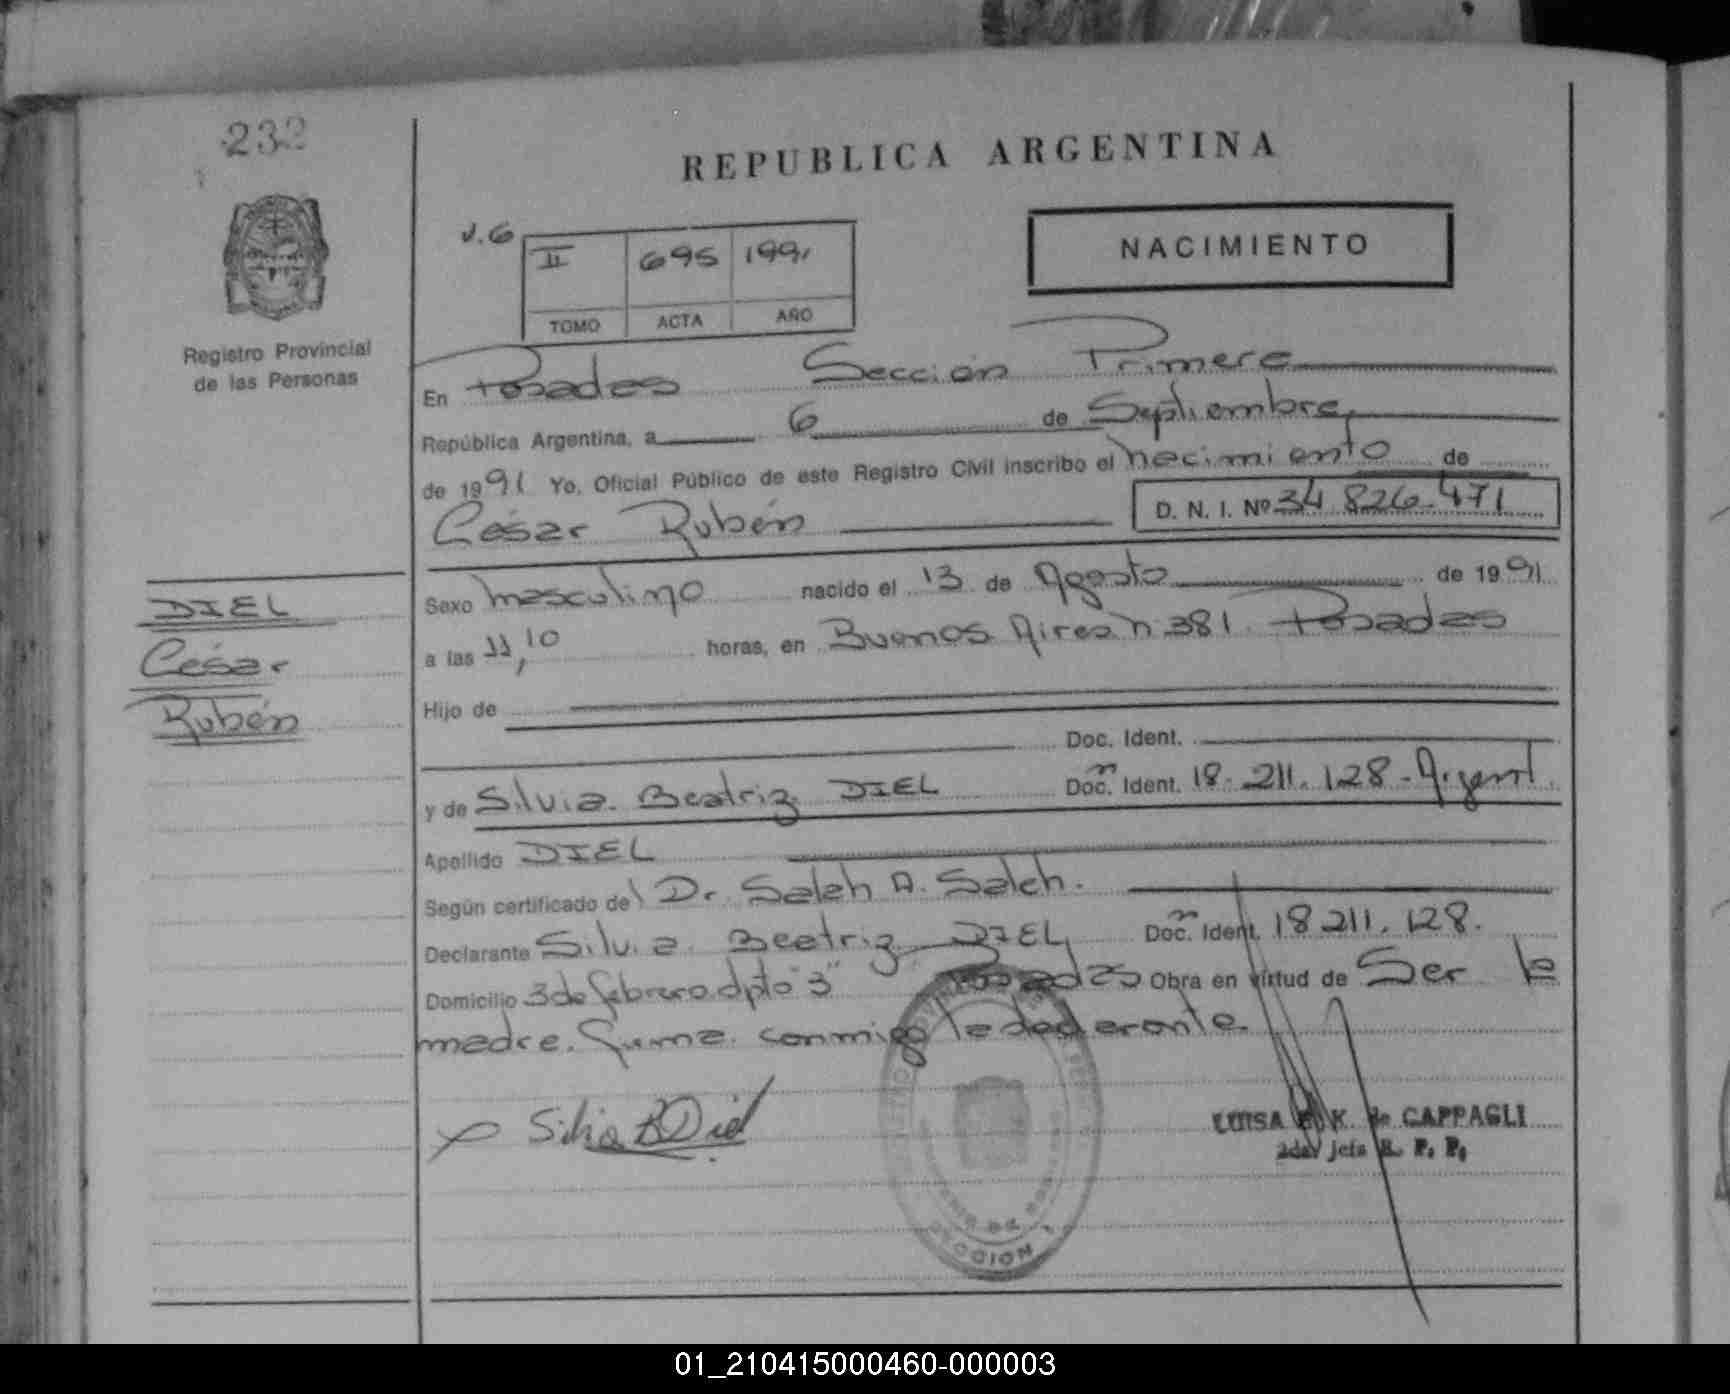 232
REPUBLICA ARGENTINA
NACIMIENTO
II 695 1991
TOMO ACTA AÑO
Registro Provincial
de las Personas
En Posadas Sección Primera
República Argentina, a 6 de Septiembre,
de 1991 Yo, Oficial Público de este Registro Civil inscribo el nacimiento de
César Rubén D. N. I. Nº 34 826.471
DIEL
César
Rubén
Sexo masculino nacido el 13 de Agosto de 1991
a las 11,10 horas, en Buenos Aires n 381 Posadas
Hijo de
Doc. Ident.
y de Silvia Beatriz DIEL Doc. Ident. 18.211.128-Argent.
Apellido DIEL
Según certificado del Dr. Saleh A. Saleh.
Declarante Silvia Beatriz DIEL Doc. Ident. 18 211.128.
Domicilio 3 de febrero dpto "3" Posadas Obra en virtud de Ser la
madre. firma conmigo la declarante.
Silvia B Diel
LUISA K. de CAPPAGLI
2da Jefa R. P. P.
SECCION 1
01_210415000460-000003